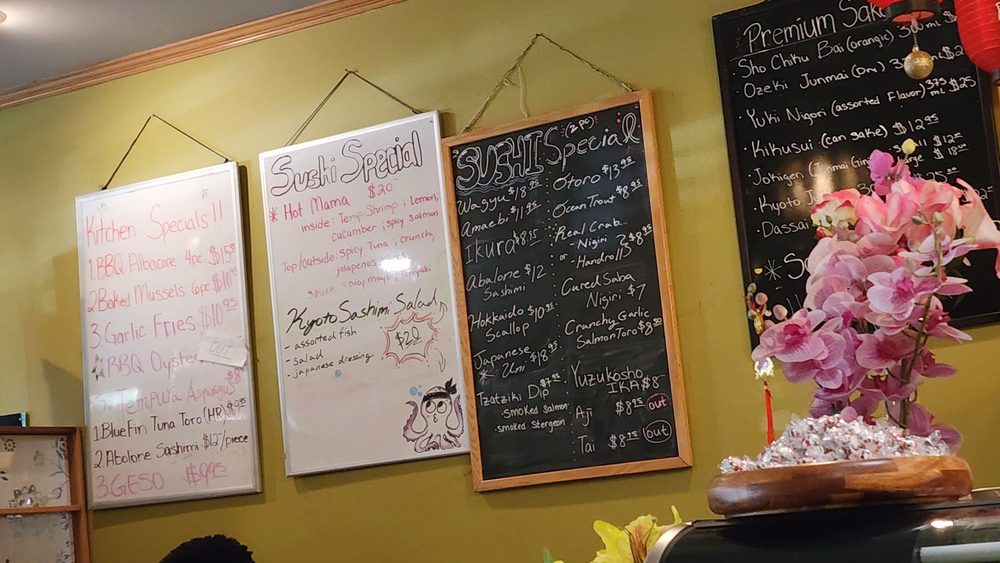 Kitchen Specials!!
1. BBQ Albacore 4pc $15.95
2. Baked Mussels 6pc
3 Garlic Fries $10.95
BBQ Oyster
OUT
Tempura Asparagus $8
1. BlueFin Tuna Toro (HR)
2. Abolone Sashimi $12/piece
3. GESO $9.95
Sushi Special
$20
* Hot Mama
inside: Temp Shrimp, Lemon,
cucumber, spicy salmon
Top/outside: Spicy Tuna, crunch,
jalapenos
sauce: spicy mayo, teriyaki
Kyoto Sashimi Salad
$20
- assorted fish
- salad
- japanese dressing
SUSHI (2pc) Special
Wa-gyu $18.95
Amaebi $11.95
Ikura $8.95
Abalone $12
Sashimi
Hokkaido $10.95
Scallop
Japanese $18.95
* Uni
Tzatziki Dip
smoked salmon
smoked stergeon
Otoro $13.95
Ocean Trout $8.95
Real Crab...
- Nigiri
or - Handroll
$8.95
Cured Saba
Nigiri $7
Crunchy Garlic
Salmon Toro $8.95
Yuzukosho
IKA $8
Aji $8.95 out
Tai $8.95 out
Premium Sake
Sho Chiku Bai (orangic) 300mL
Ozeki Junmai (Dry)
Yuki Nigori (assorted Flavor) 375 mL $25
Kikusui (can sake) $12.95
Jokigen
Kyoto
Dassai